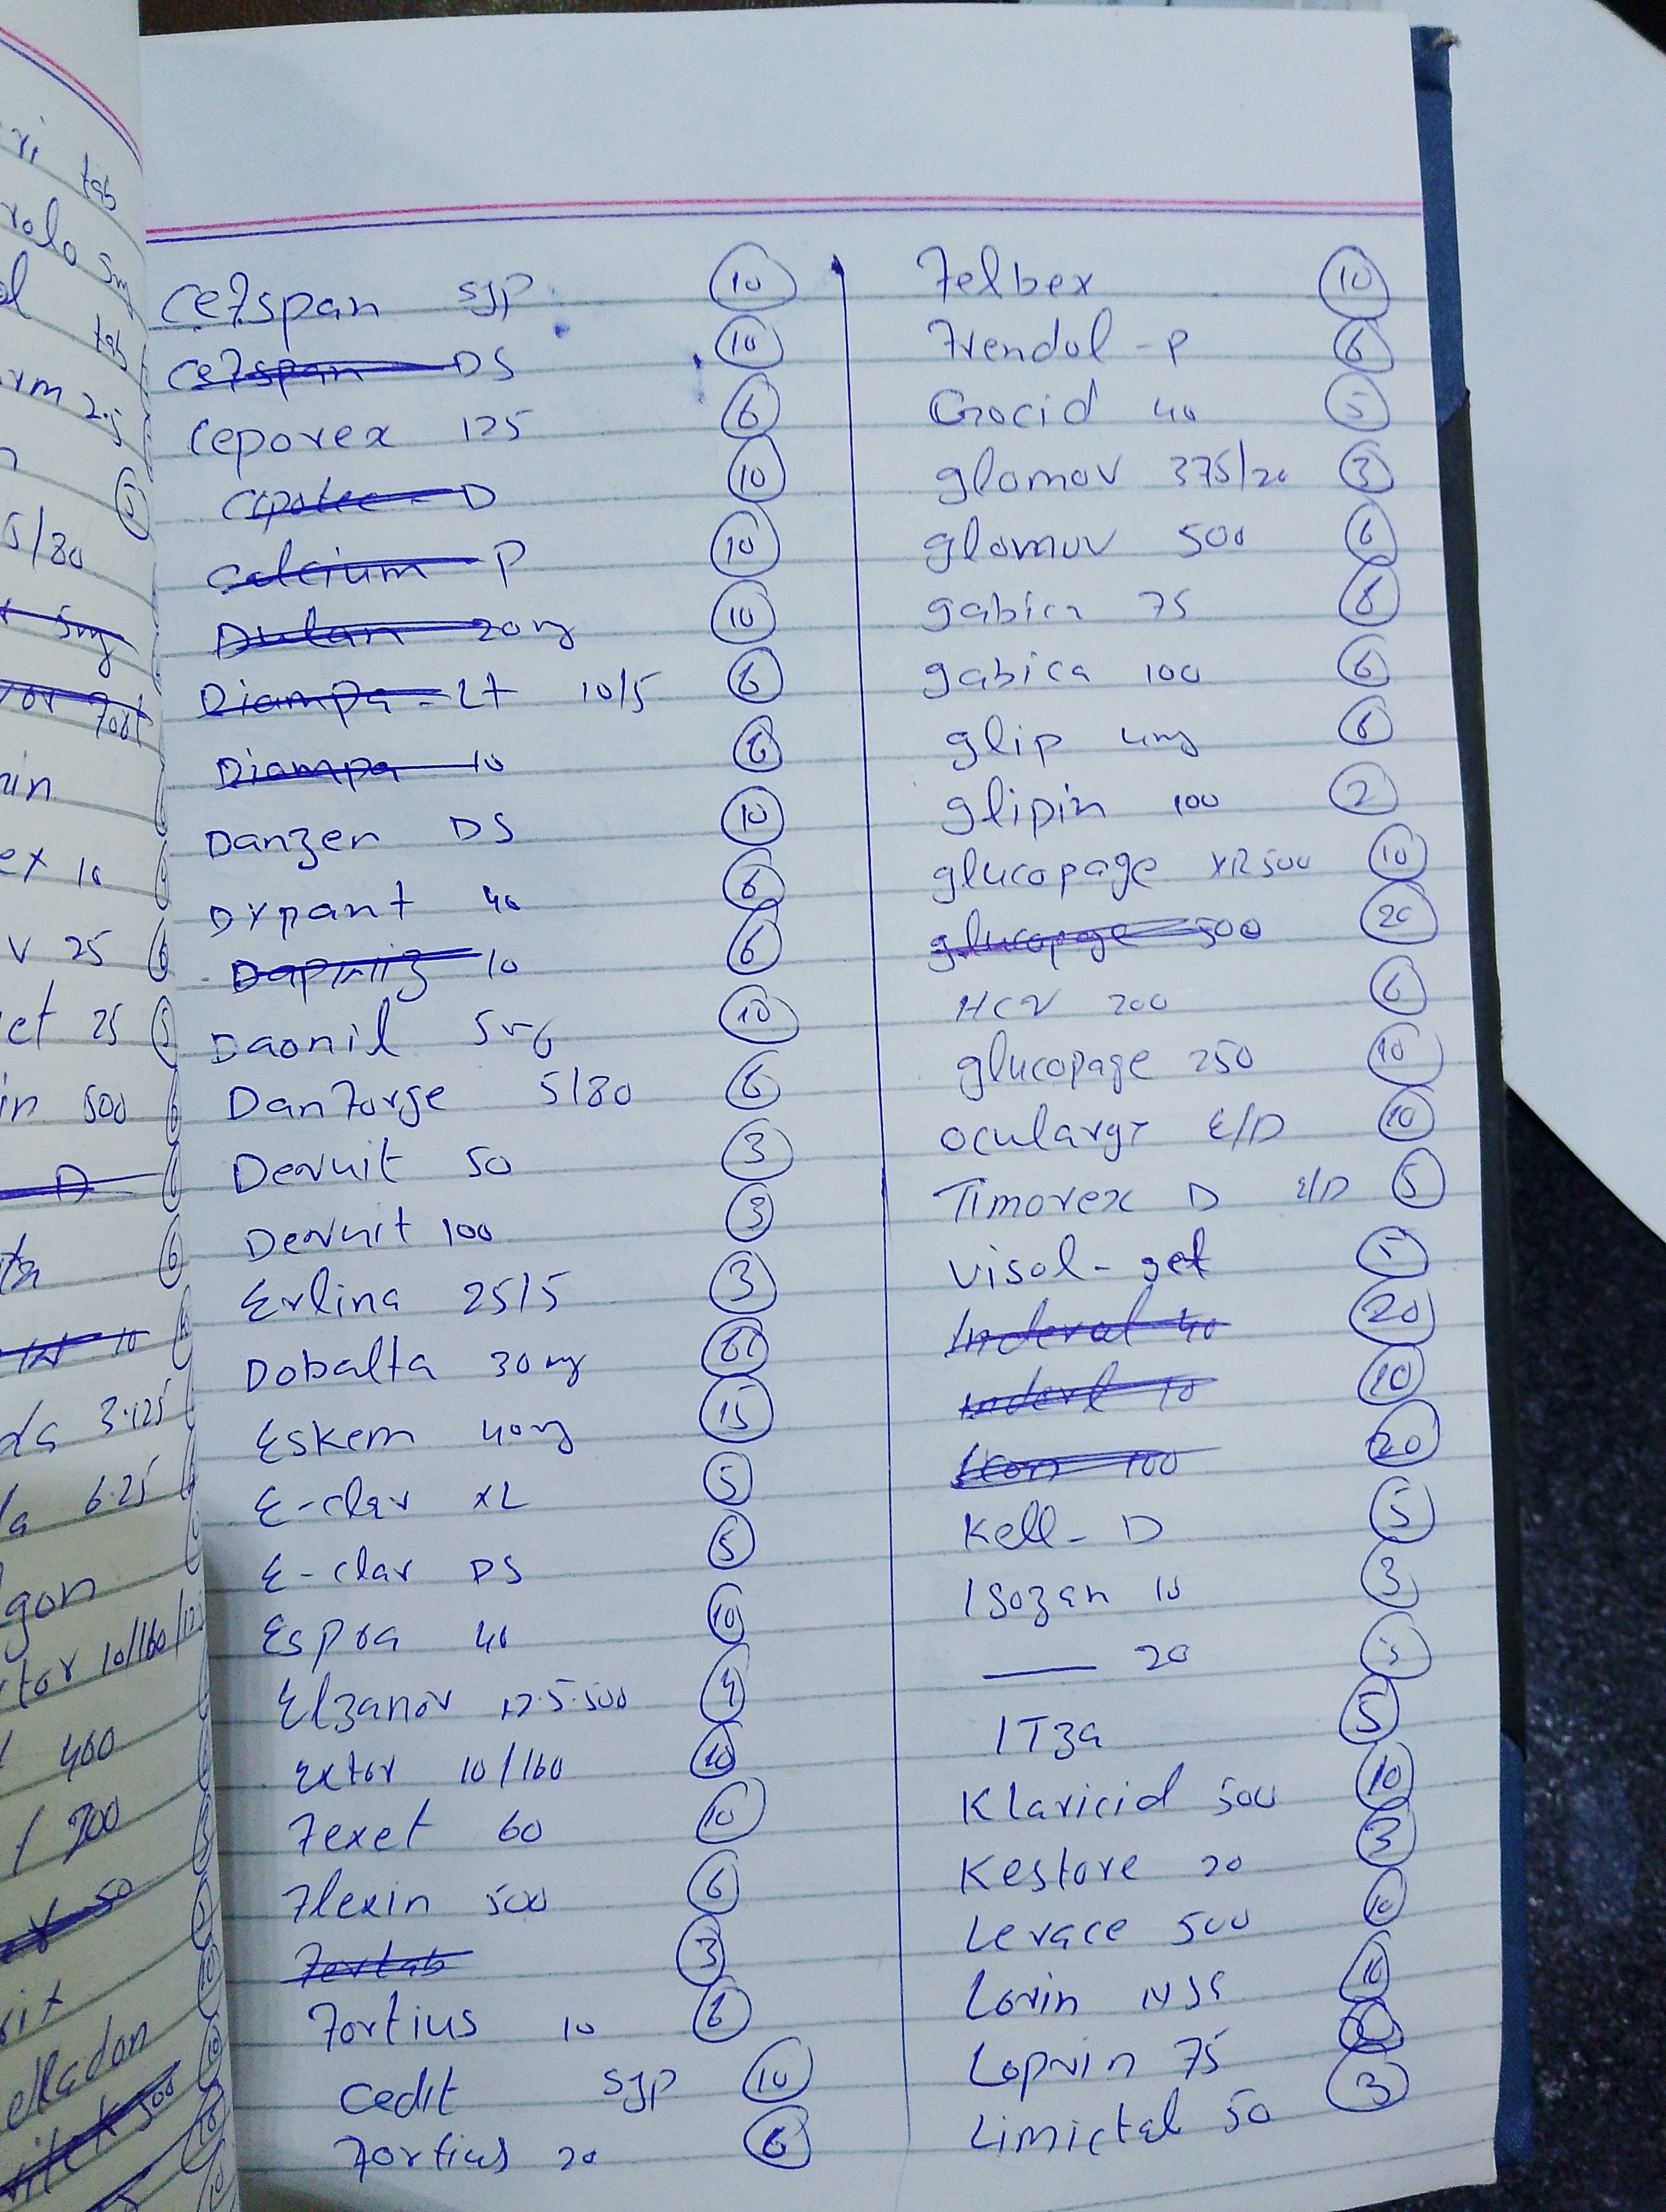 ri tab
rolo 5mg
tab
rm 2.5
5
5/80
5mg
or fort
in
ex 10
v 25 6
et 25 5
in 500 6
D 6
6
10
da 3.125
a 6.25
gon
tor 10/160/12.5
400
200
50
Cefspan syp 10
Cefspan DS 10
Ceporex 125 6
D 10
Calcium - P 10
Dulan 20mg 10
Diampa - Lt 10/5 6
Diampa 10 6
Danzen DS 10
Dypant 40 6
10 6
Daonil 5mg 10
Danforge 5/80 6
Devnit 50 3
Devnit 100 3
Erlina 25/5 3
Dobalta 30mg
Eskem 40mg 15
E-clar XL 5
E-clar DS 5
Espra 40 10
Elzanov 12.5.500 4
Extor 10/160 10
Fexet 60 10
Flexin 500 6
Fertab 3
Fortius 10 6
Cedit syp 10
Fortius 20 6
Felbex 10
Frendol - P 6
Crocid 40 5
glomov 375/20 3
glomuv 500 6
gabica 75 6
gabica 100 6
glip 4mg 6
glipin 100 2
glucopage XR 500 10
glucopage 500 20
HCV 200 6
glucopage 250 10
E/D 10
Timovex D E/D 5
Visol - gel
Inderal 40 20
Inderl 10 10
Icon 100 20
Kell - D 5
Isozan 10 3
—— 20 3
ITza 5
Klaricid 500 10
Kestore 20 3
Levace 500 10
Lovin 10
Loprin 75
Limictal 50 3